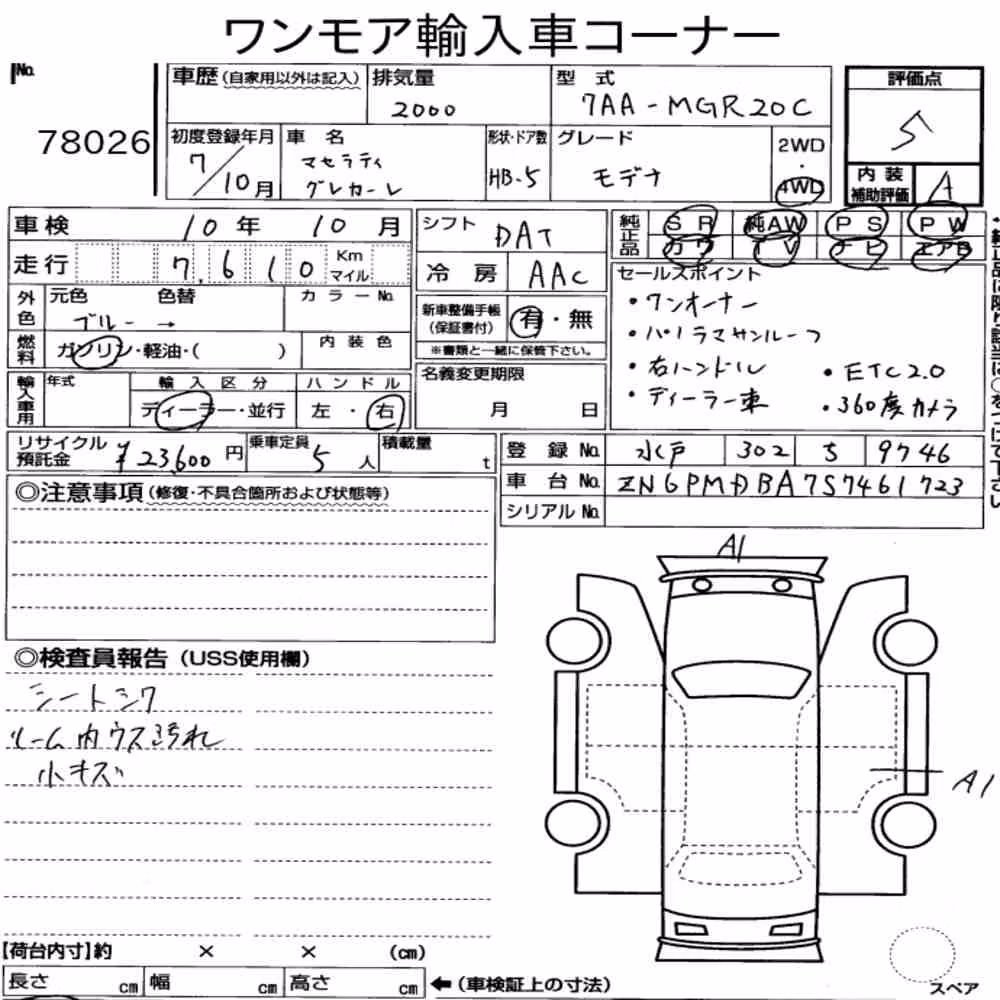 ワンモア輸入車コーナー
No. 78026
車歴 (自家用以外は記入)
排気量 2000
型式 7AA-MGR20C
評価点 5
初度登録年月 7/10月
車名 マセラティ
グレカーレ
形状・ドア数 HB-5
グレード モデナ
2WD・4WD
内装補助評価 A
車検 10年 10月
シフト DAT
純正品 SR 純AW PS PW
カワ TV ナビ エアB
走行 7,610 Km マイル
冷房 AAC
セールスポイント
・ワンオーナー
・パノラマサンルーフ
・右ハンドル ・ETC2.0
・ディーラー車 ・360度カメラ
外色 元色 ブルー → 色替 カラーNo.
新車整備手帳(保証書付) 有・無
※書類と一緒に保管下さい。
燃料 ガソリン・軽油・( ) 内装色
名義変更期限 月 日
輸入車用 年式 輸入区分 ディーラー・並行 ハンドル 左・右
リサイクル預託金 ¥23,600円 乗車定員 5人 積載量 t
登録No. 水戸 302 ち 9746
車台No. ZN6PMDBA7S7461723
シリアルNo.
◎注意事項(修復・不具合箇所および状態等)
A1
◎検査員報告(USS使用欄)
シートシワ
ルーム内ウス汚れ
小キズ
A1
【荷台内寸】約 × × (cm)
長さ cm 幅 cm 高さ cm ←(車検証上の寸法)
スペア